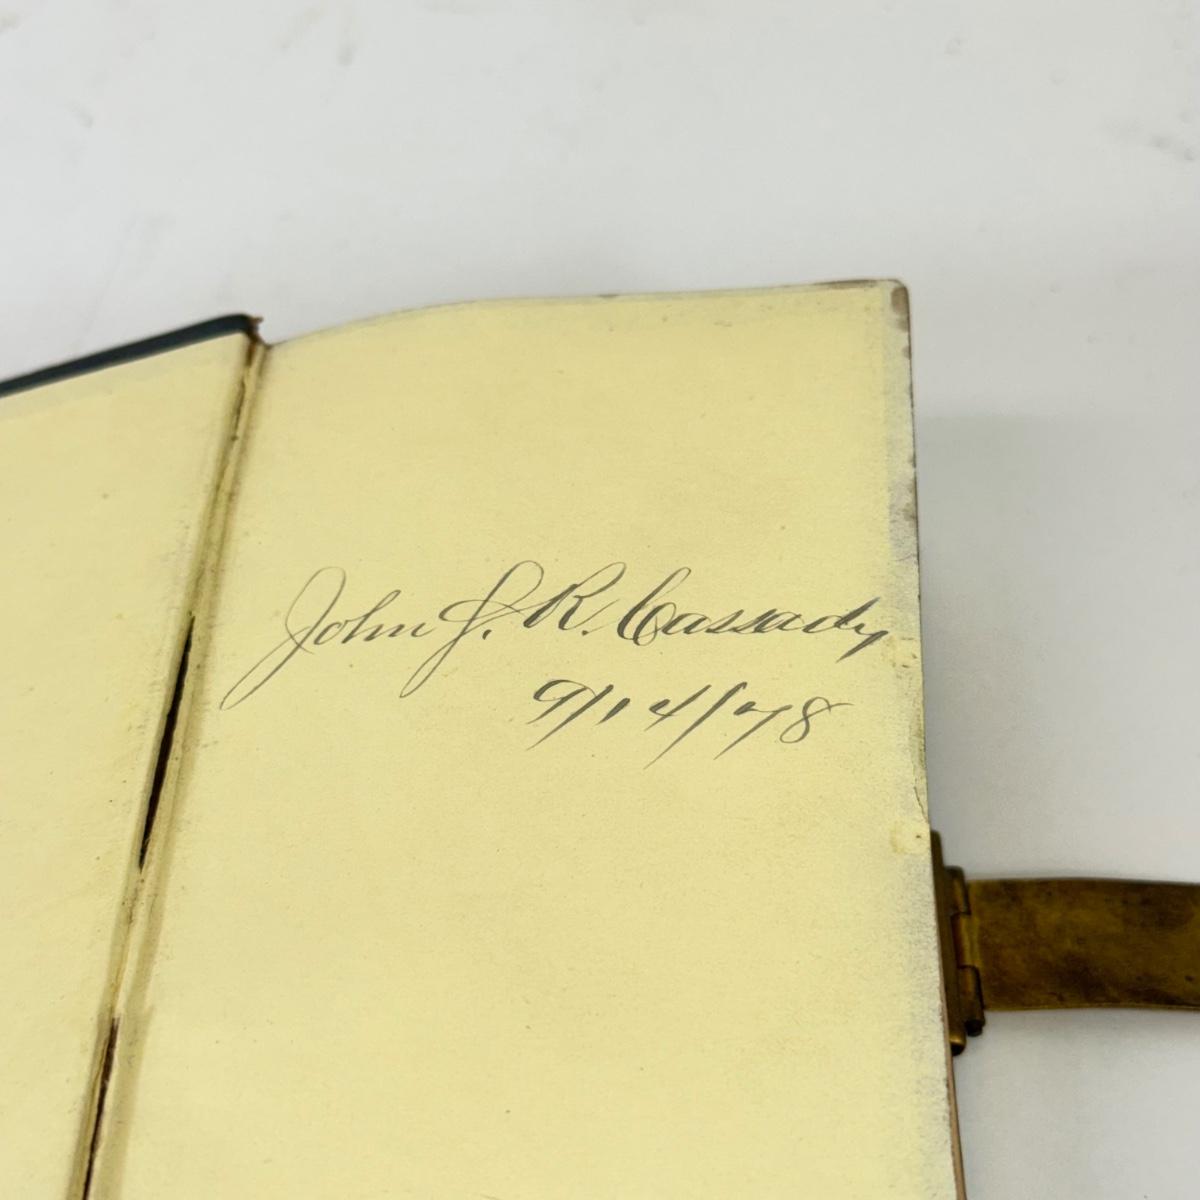 John J. R. Cassady
9/14/78